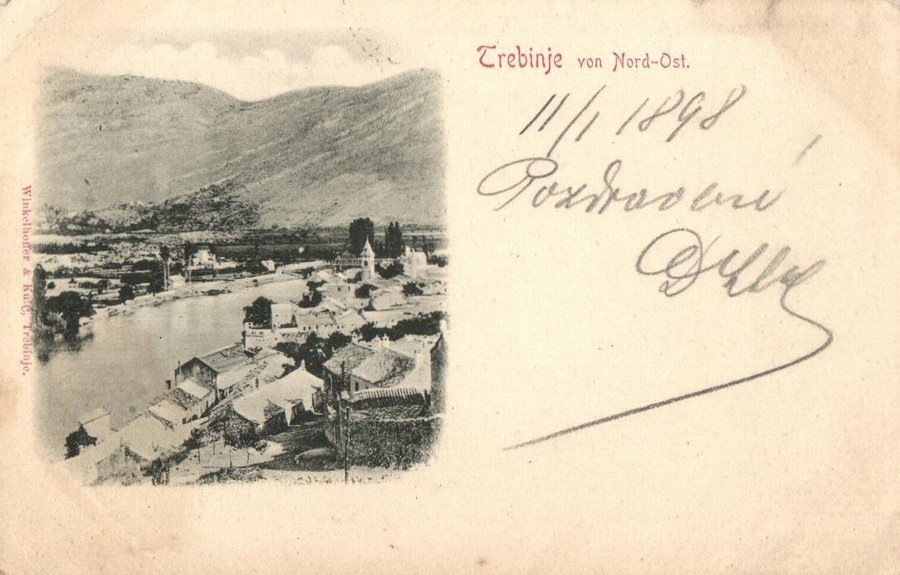 Trebinje von Nord-Ost.
11/1 1898
Pozdravení
Winkelhofer & Ku:C, Trebinje.